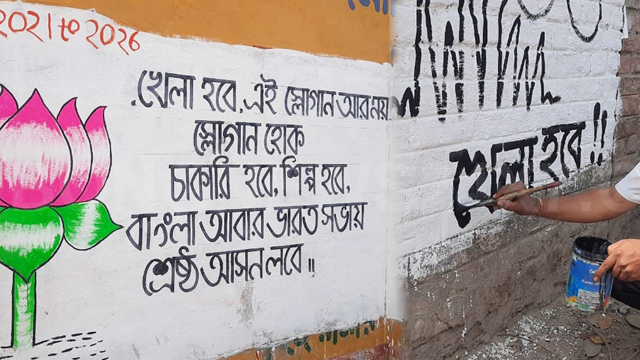 2021 to 2026
.খেলা হবে.এই স্লোগান আর নয়
স্লোগান হোক
চাকরি হবে, শিল্প হবে,
বাংলা আবার ভারত সভায়
শ্রেষ্ঠ আসন লবে ৷৷
খেলা হবে !!